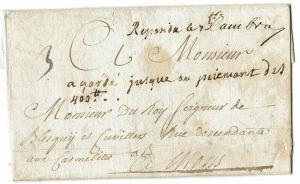 Reponda le
Monsieur
a gardé jusque au paiemant des
400
Monsieur Du Roÿ Seigneur de
Blesquÿ et Cuvillers Rue descendante
aux Carmelites a
Mons